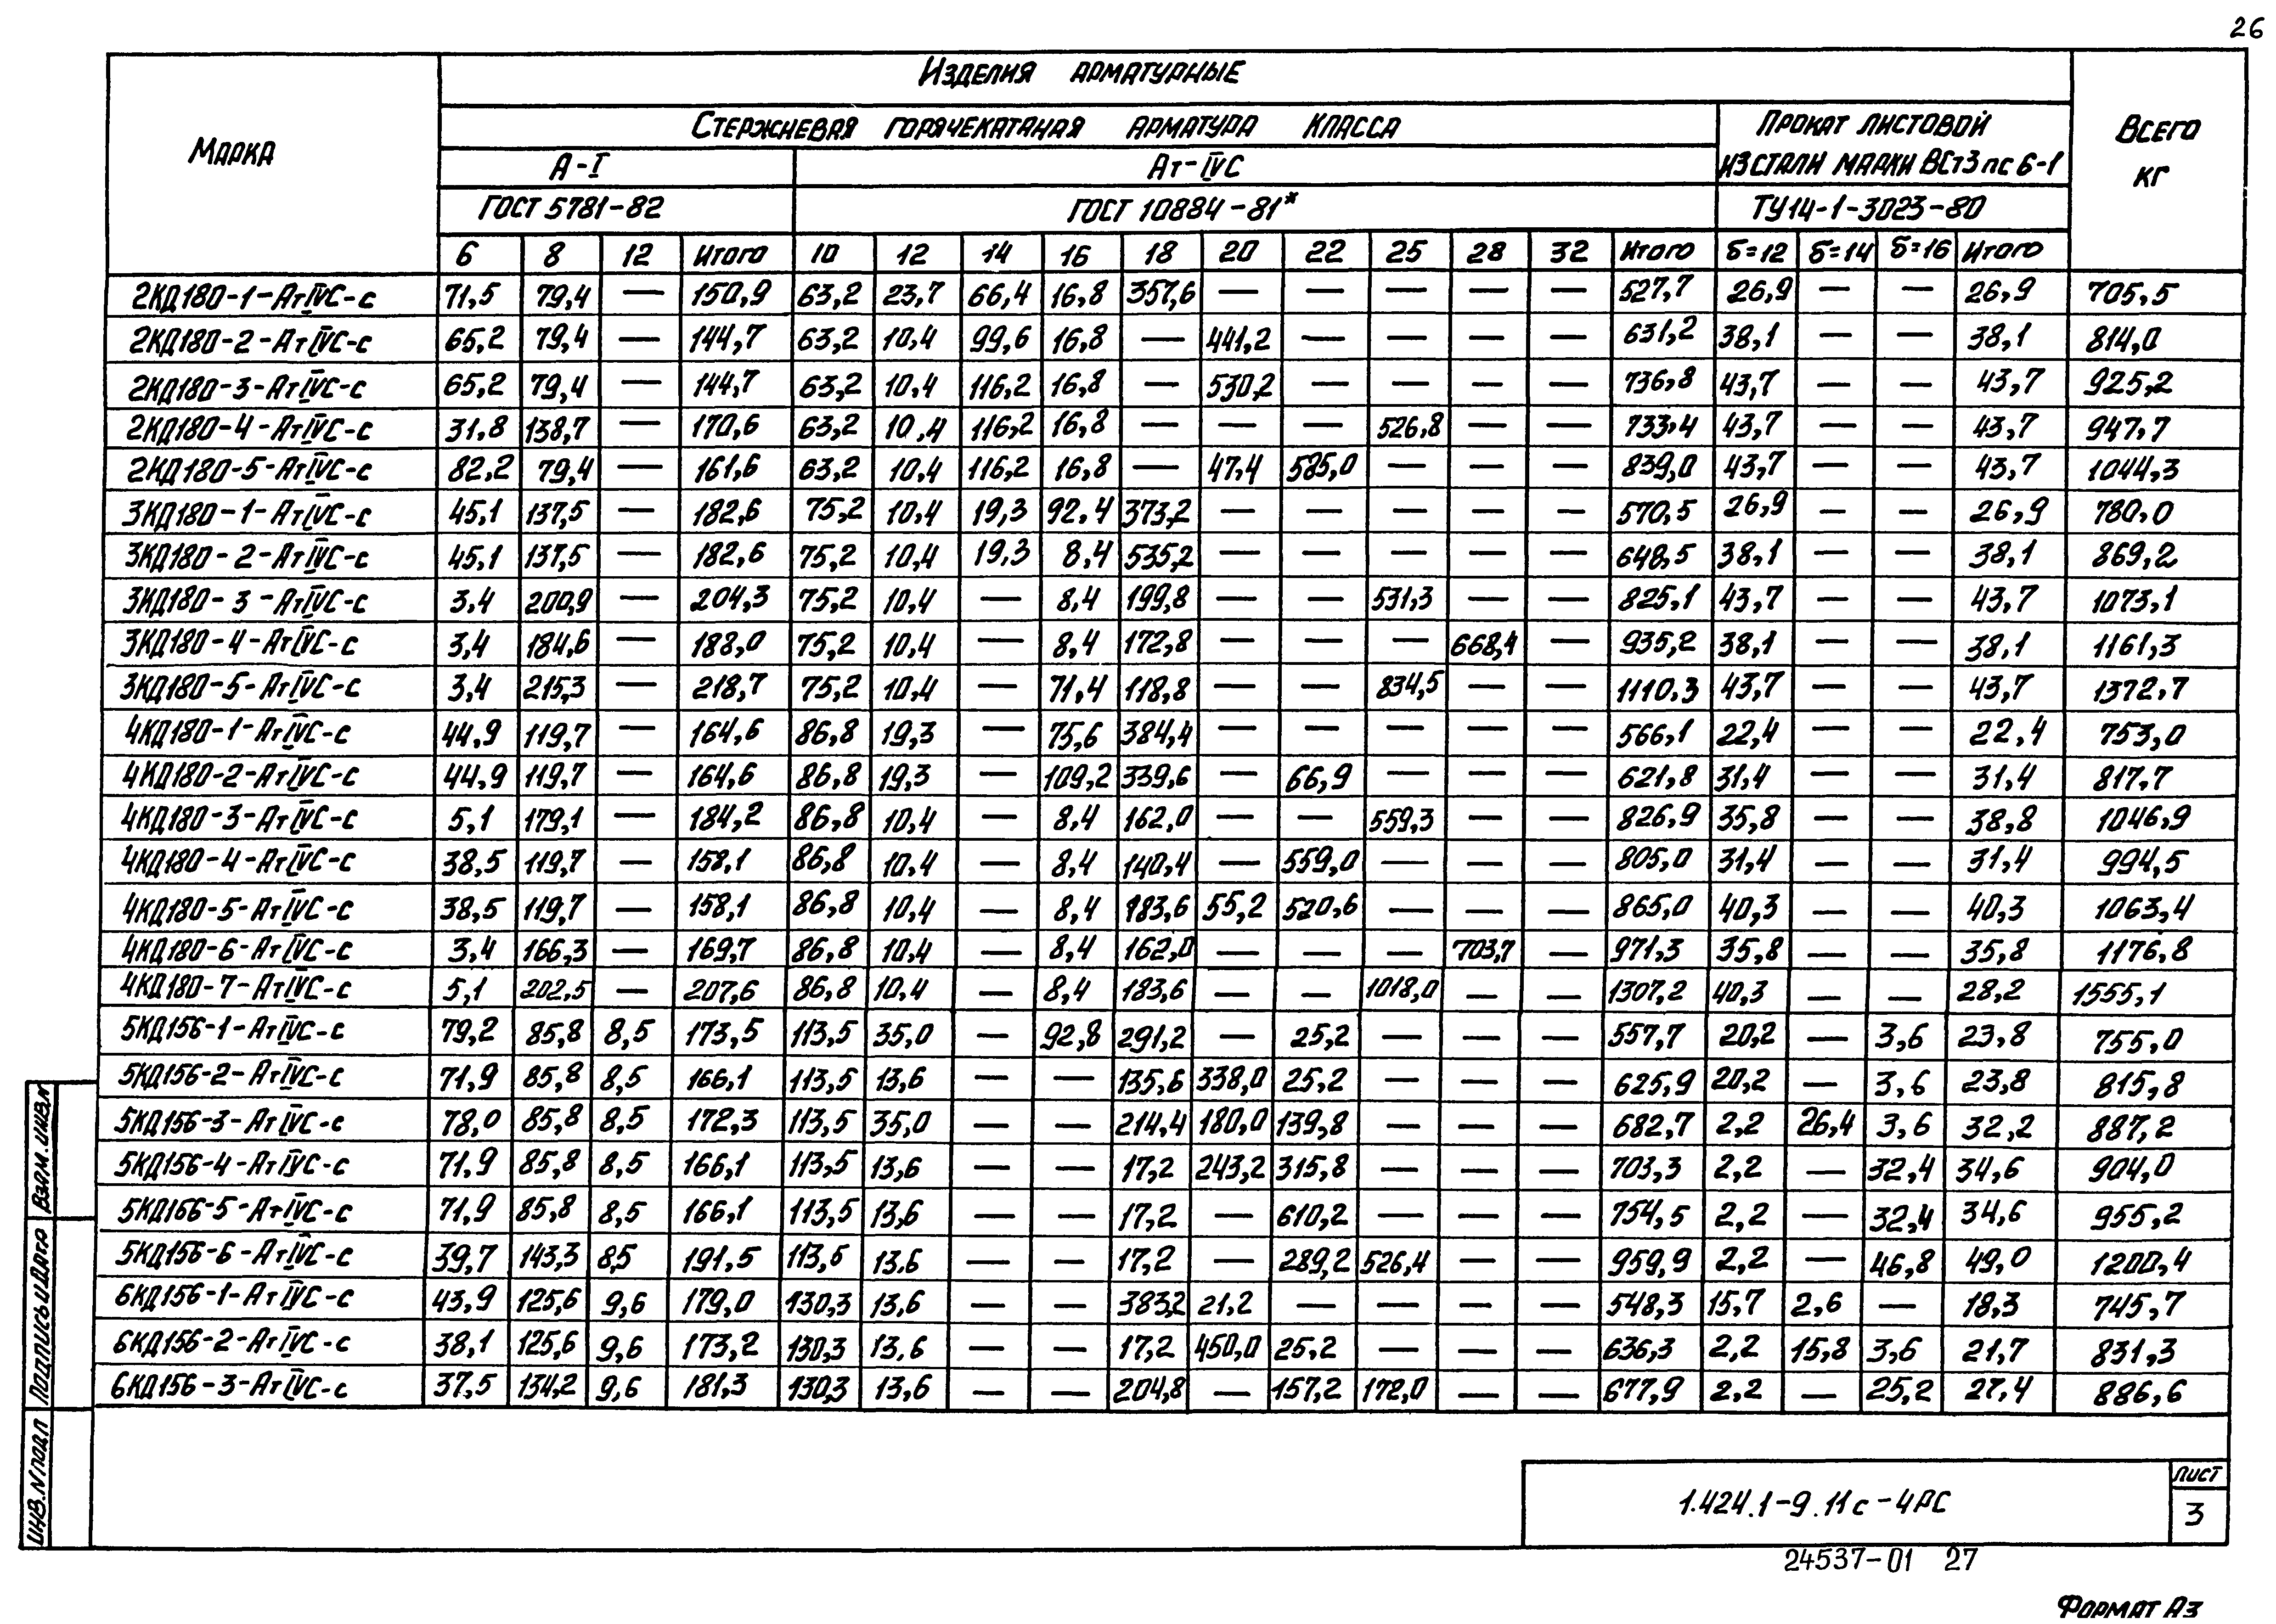 26
Изделия арматурные
Марка
Стержневая горячекатаная арматура класса
Прокат листовой
из стали марки ВСт3пс6-1
Всего
кг
А-I
Ат-IVС
ГОСТ 5781-82
ГОСТ 10884-81*
ТУ14-1-3023-80
6 8 12 Итого 10 12 14 16 18 20 22 25 28 32 Итого δ=12 δ=14 δ=16 Итого
2КД180-1-АтIVС-с 71,5 79,4 — 150,9 63,2 23,7 66,4 16,8 357,6 — — — — — 527,7 26,9 — — 26,9 705,5
2КД180-2-АтIVС-с 65,2 79,4 — 144,7 63,2 10,4 99,6 16,8 — 441,2 — — — — 631,2 38,1 — — 38,1 814,0
2КД180-3-АтIVС-с 65,2 79,4 — 144,7 63,2 10,4 116,2 16,8 — 530,2 — — — — 736,8 43,7 — — 43,7 925,2
2КД180-4-АтIVС-с 31,8 138,7 — 170,6 63,2 10,4 116,2 16,8 — — — 526,8 — — 733,4 43,7 — — 43,7 947,7
2КД180-5-АтIVС-с 82,2 79,4 — 161,6 63,2 10,4 116,2 16,8 — 47,4 585,0 — — — 839,0 43,7 — — 43,7 1044,3
3КД180-1-АтIVС-с 45,1 137,5 — 182,6 75,2 10,4 19,3 92,4 373,2 — — — — — 570,5 26,9 — — 26,9 780,0
3КД180-2-АтIVС-с 45,1 137,5 — 182,6 75,2 10,4 19,3 8,4 535,2 — — — — — 648,5 38,1 — — 38,1 869,2
3КД180-3-АтIVС-с 3,4 200,9 — 204,3 75,2 10,4 — 8,4 199,8 — — 531,3 — — 825,1 43,7 — — 43,7 1073,1
3КД180-4-АтIVС-с 3,4 184,6 — 188,0 75,2 10,4 — 8,4 172,8 — — — 668,4 — 935,2 38,1 — — 38,1 1161,3
3КД180-5-АтIVС-с 3,4 215,3 — 218,7 75,2 10,4 — 71,4 118,8 — — 834,5 — — 1110,3 43,7 — — 43,7 1372,7
4КД180-1-АтIVС-с 44,9 119,7 — 164,6 86,8 19,3 — 75,6 384,4 — — — — — 566,1 22,4 — — 22,4 753,0
4КД180-2-АтIVС-с 44,9 119,7 — 164,6 86,8 19,3 — 109,2 339,6 — 66,9 — — — 621,8 31,4 — — 31,4 817,7
4КД180-3-АтIVС-с 5,1 179,1 — 184,2 86,8 10,4 — 8,4 162,0 — — 559,3 — — 826,9 35,8 — — 38,8 1046,9
4КД180-4-АтIVС-с 38,5 119,7 — 158,1 86,8 10,4 — 8,4 140,4 — 559,0 — — — 805,0 31,4 — — 31,4 994,5
4КД180-5-АтIVС-с 38,5 119,7 — 158,1 86,8 10,4 — 8,4 183,6 55,2 520,6 — — — 865,0 40,3 — — 40,3 1063,4
4КД180-6-АтIVС-с 3,4 166,3 — 169,7 86,8 10,4 — 8,4 162,0 — — — 703,7 — 971,3 35,8 — — 35,8 1176,8
4КД180-7-АтIVС-с 5,1 202,5 — 207,6 86,8 10,4 — 8,4 183,6 — — 1018,0 — — 1307,2 40,3 — — 28,2 1555,1
5КД156-1-АтIVС-с 79,2 85,8 8,5 173,5 113,5 35,0 — 92,8 291,2 — 25,2 — — — 557,7 20,2 — 3,6 23,8 755,0
5КД156-2-АтIVС-с 71,9 85,8 8,5 166,1 113,5 13,6 — — 135,6 338,0 25,2 — — — 625,9 20,2 — 3,6 23,8 815,8
5КД156-3-АтIVС-с 78,0 85,8 8,5 172,3 113,5 35,0 — — 214,4 180,0 139,8 — — — 682,7 2,2 26,4 3,6 32,2 887,2
5КД156-4-АтIVС-с 71,9 85,8 8,5 166,1 113,5 13,6 — — 17,2 243,2 315,8 — — — 703,3 2,2 — 32,4 34,6 904,0
5КД166-5-АтIVС-с 71,9 85,8 8,5 166,1 113,5 13,6 — — 17,2 — 610,2 — — — 754,5 2,2 — 32,4 34,6 955,2
5КД156-6-АтIVС-с 39,7 143,3 8,5 191,5 113,5 13,6 — — 17,2 — 289,2 526,4 — — 959,9 2,2 — 46,8 49,0 1200,4
6КД156-1-АтIVС-с 43,9 125,6 9,6 179,0 130,3 13,6 — — 383,2 21,2 — — — — 548,3 15,7 2,6 — 18,3 745,7
6КД156-2-АтIVС-с 38,1 125,6 9,6 173,2 130,3 13,6 — — 17,2 450,0 25,2 — — — 636,3 2,2 15,8 3,6 21,7 831,3
6КД156-3-АтIVС-с 37,5 134,2 9,6 181,3 130,3 13,6 — — 204,8 — 157,2 172,0 — — 677,9 2,2 — 25,2 27,4 886,6
Инв.N подл Подпись и дата Взам.инв.N
1.424.1-9.11с-4РС
Лист
3
24537-01 27
Формат А3